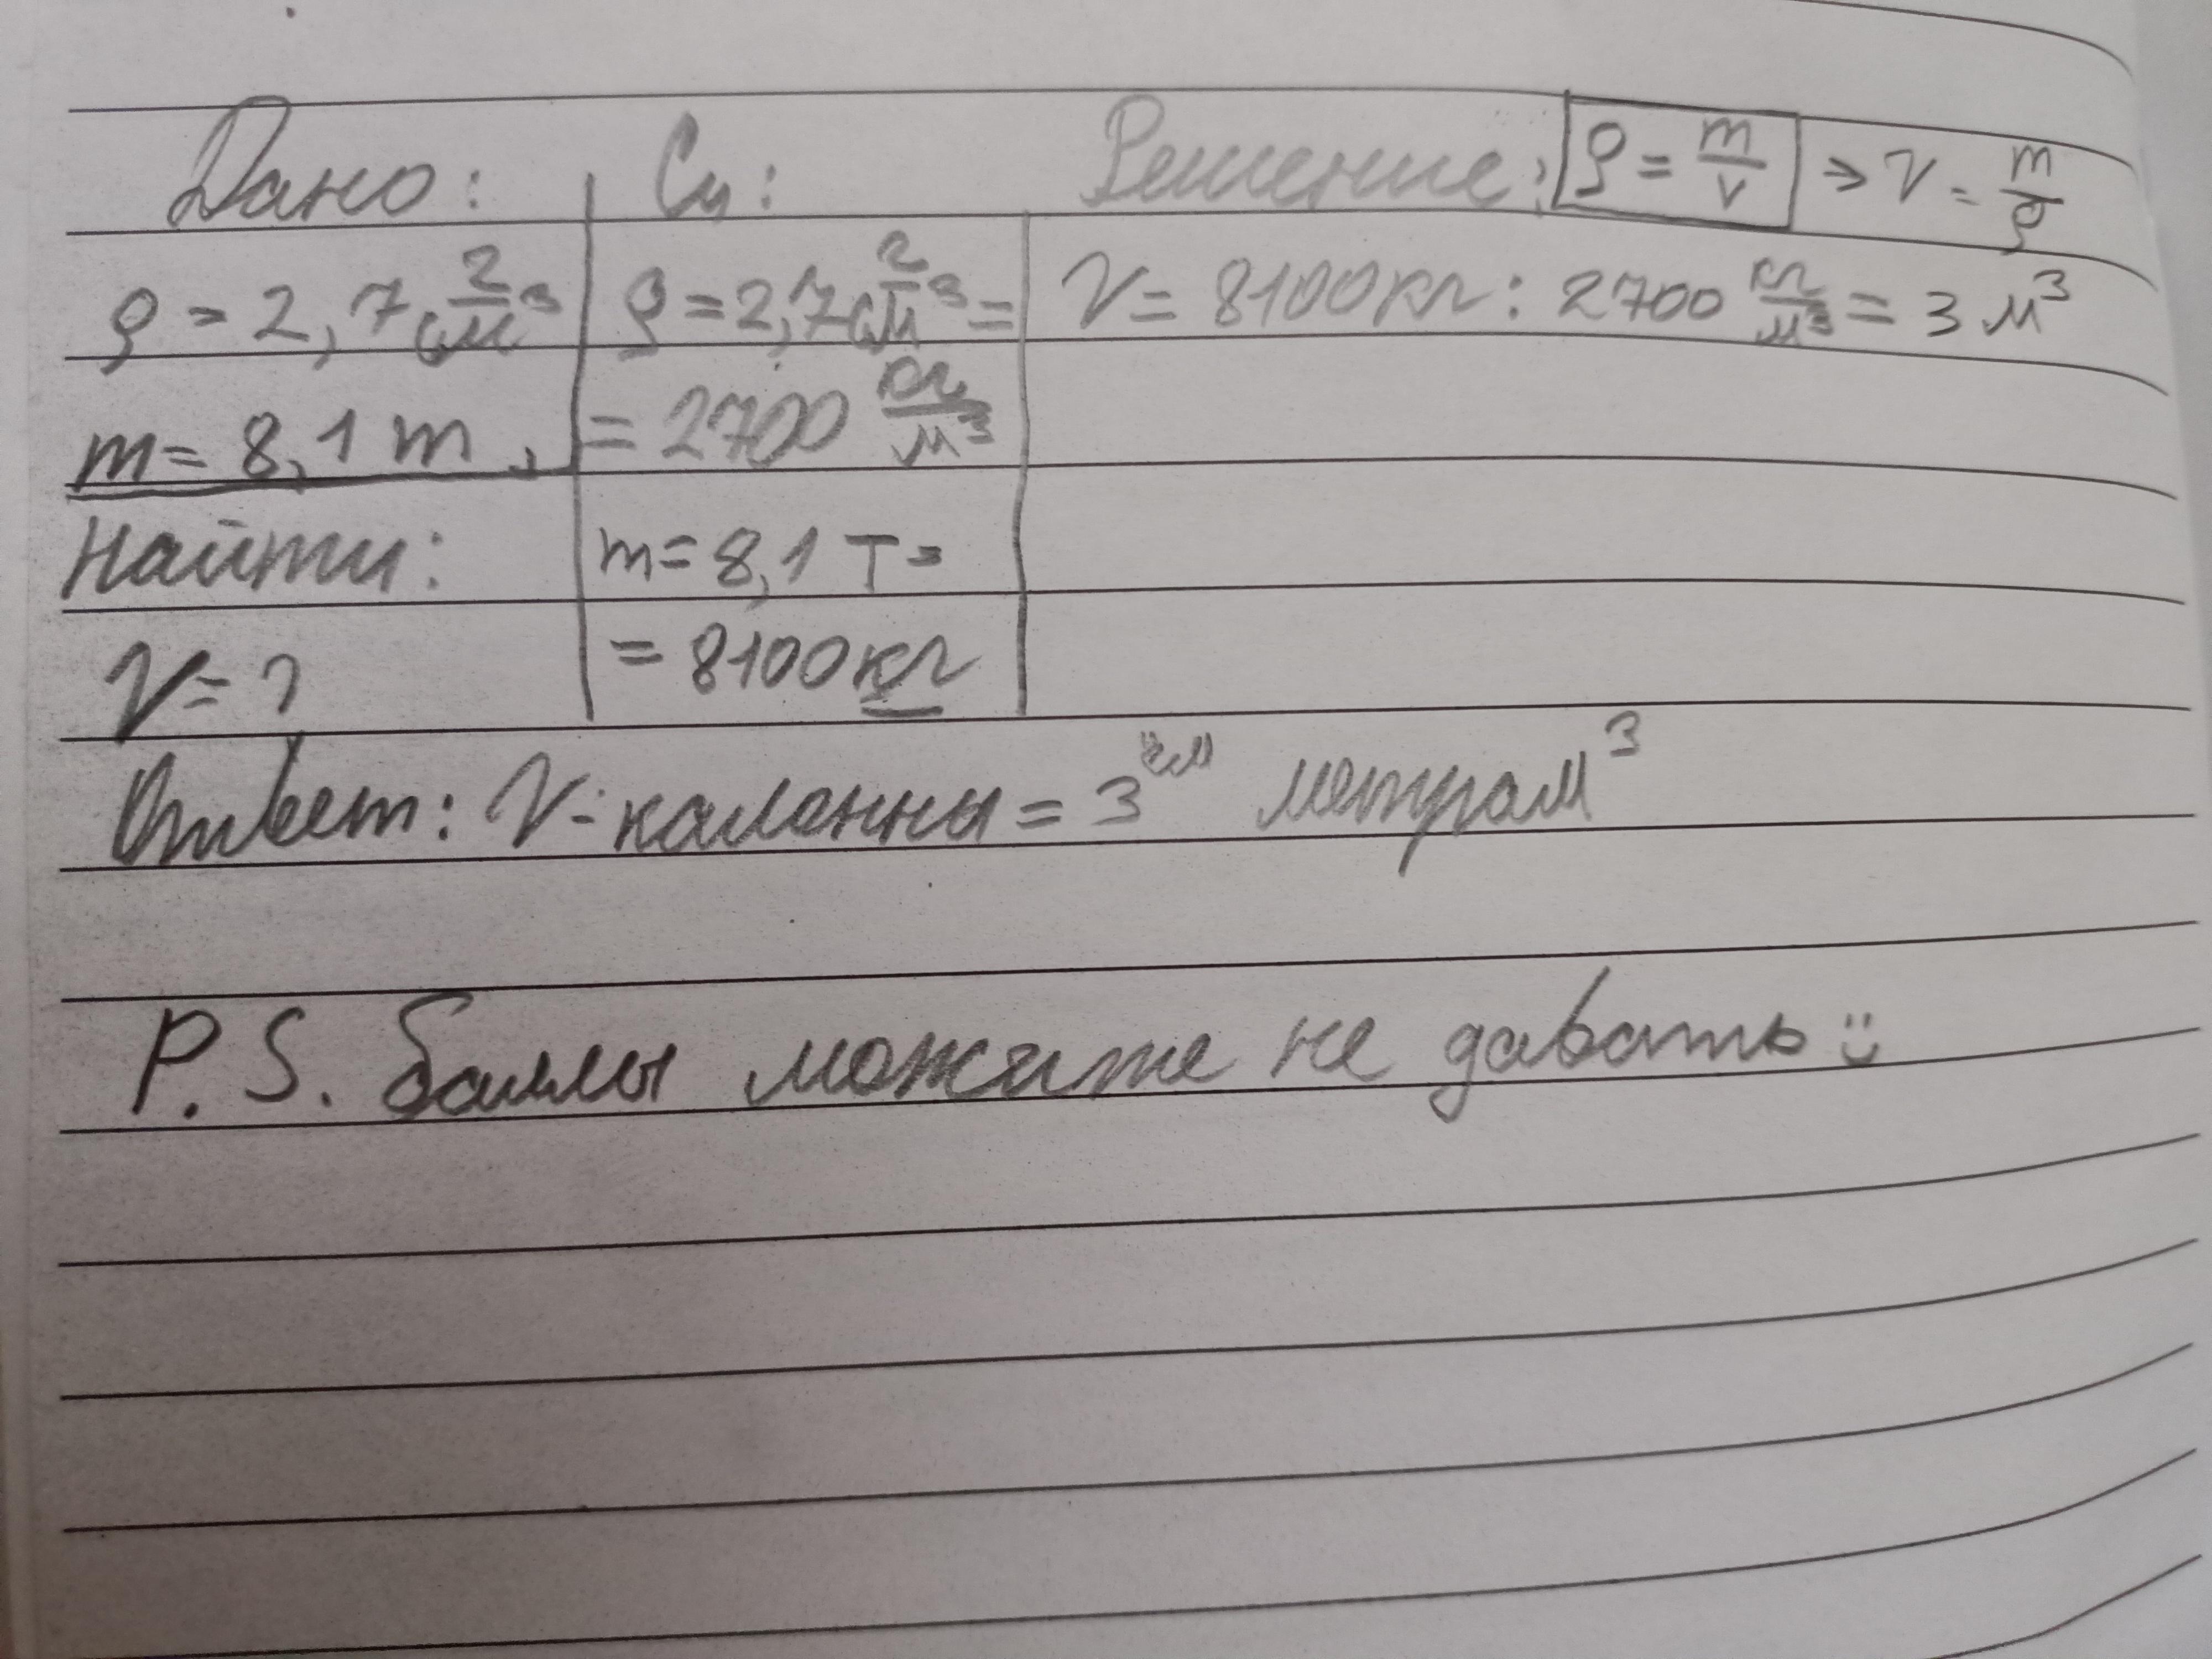 Дано: Си: Решение: ρ = m/v ⇒ V = m/ρ
ρ = 2,7 г/см³ ρ = 2,7 г/см³ = V = 8100 кг : 2700 кг/м³ = 3 м³
m = 8,1 т = 2700 кг/м³
Найти: m = 8,1 т =
V = ? = 8100 кг
Ответ: V - калонны = 3"ём" метрам³
P.S. баллы можите не давать :)